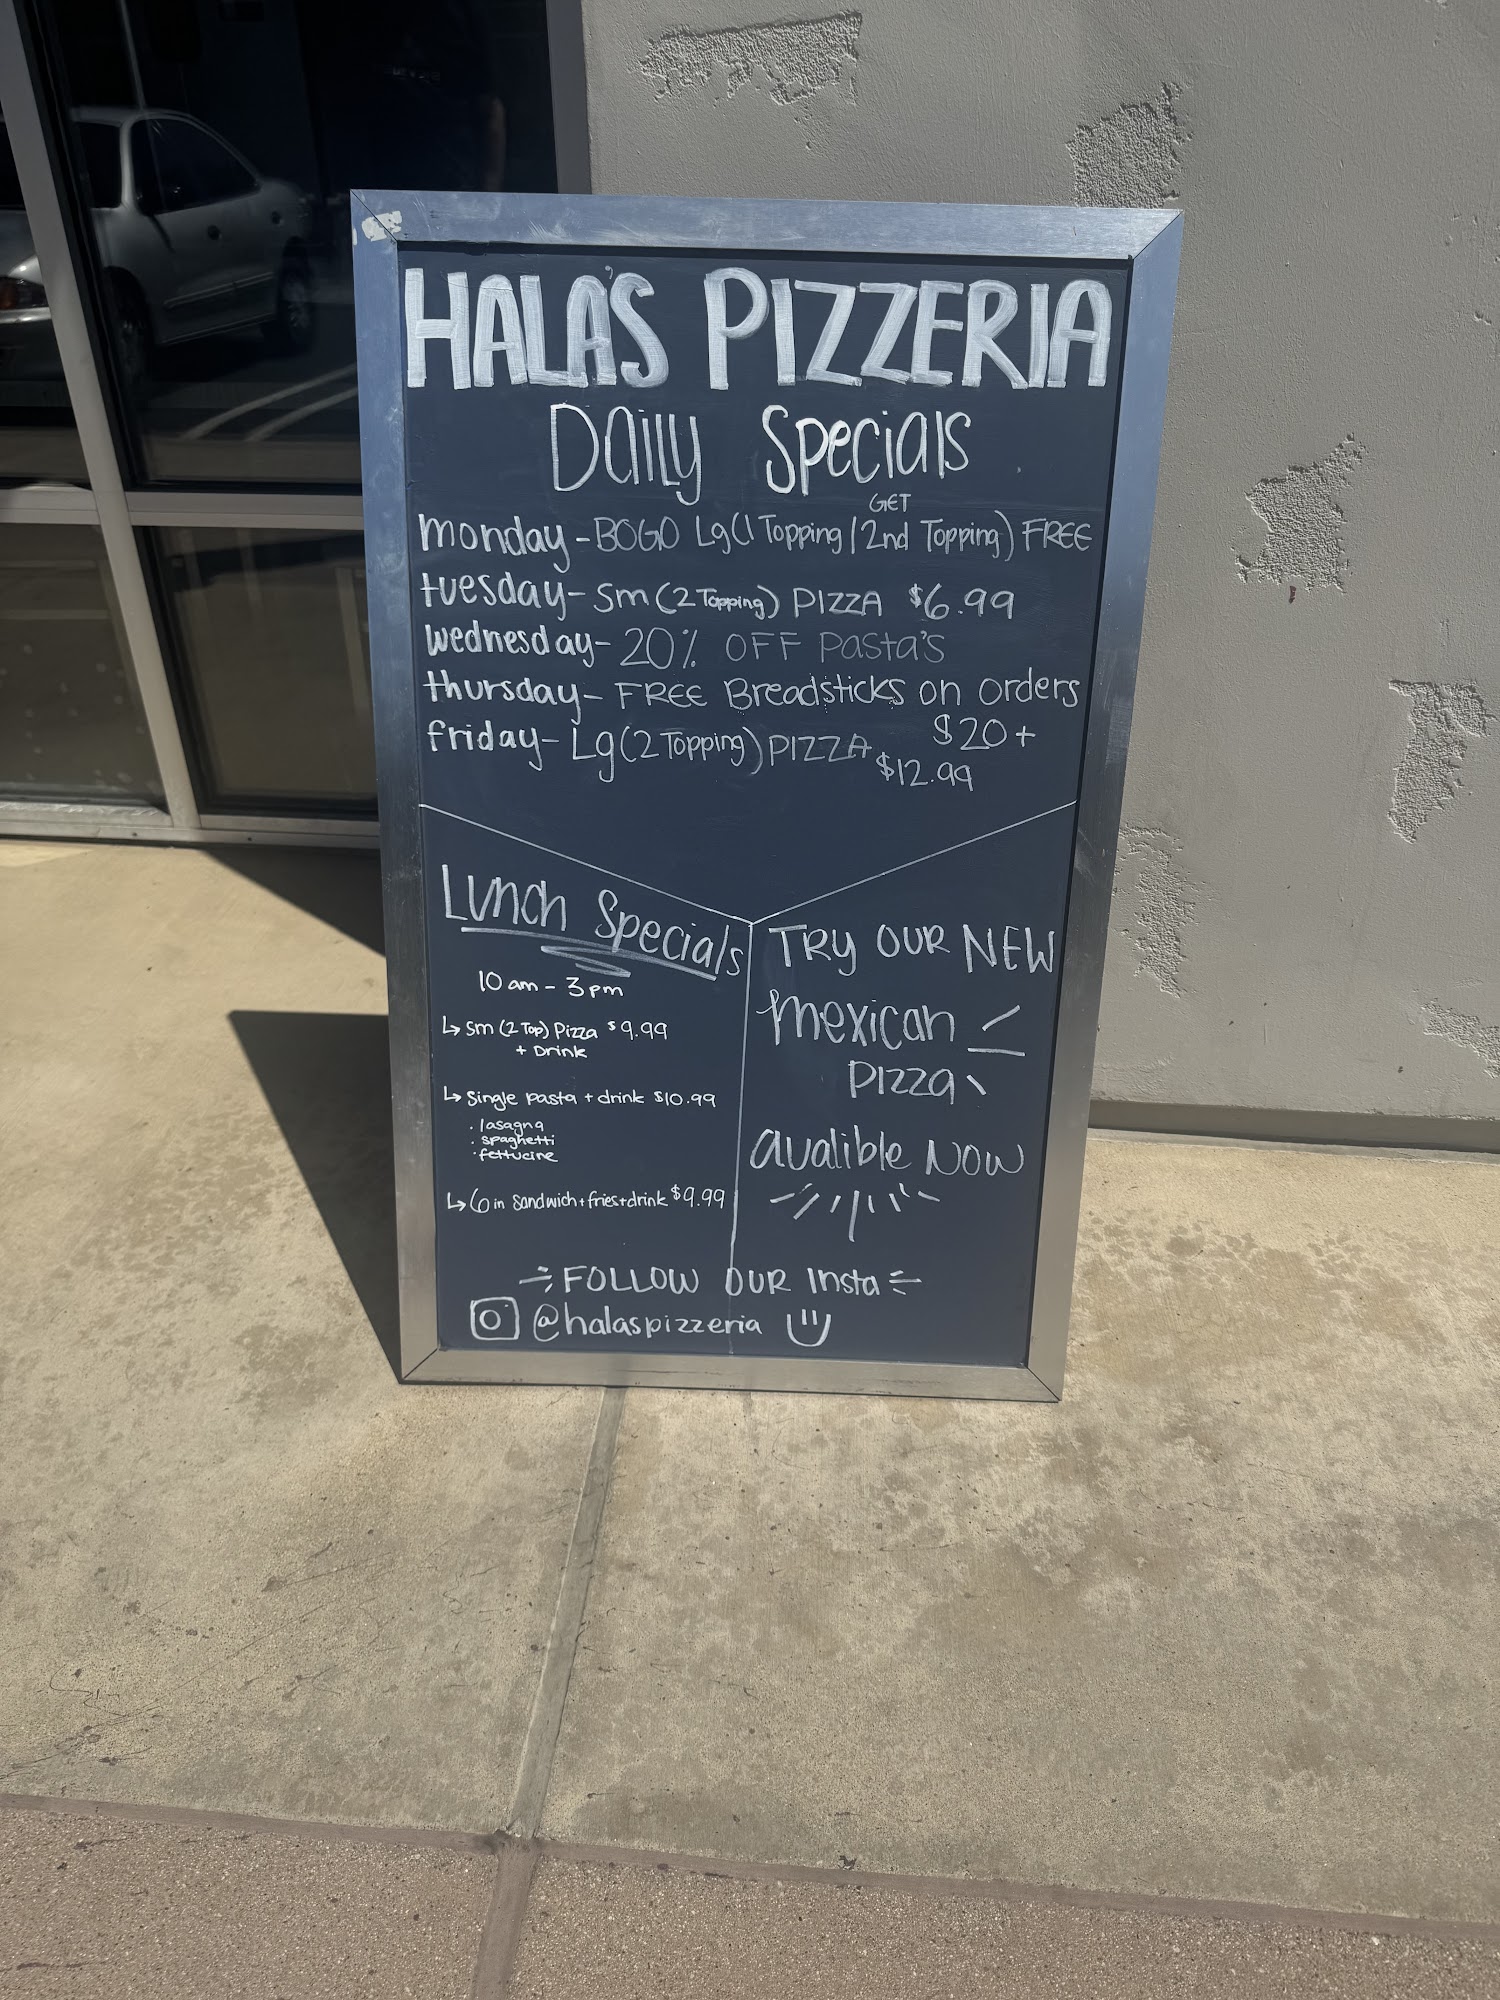 HALA'S PIZZERIA
Daily Specials
GET
monday - BOGO Lg (1 Topping / 2nd Topping) FREE
tuesday - Sm (2 Topping) PIZZA $6.99
wednesday - 20% OFF Pasta's
thursday - FREE Breadsticks on orders
$20+
friday - Lg (2 Topping) PIZZA
$12.99
Lunch Specials
10 am - 3 pm
↳ Sm (2 Top) Pizza $9.99
+ Drink
↳ Single pasta + drink $10.99
. lasagna
. spaghetti
. fettucine
↳ 6 in Sandwich + fries + drink $9.99
TRY OUR NEW
mexican
PIZZa
avalible NOW
FOLLOW OUR Insta
@halaspizzeria